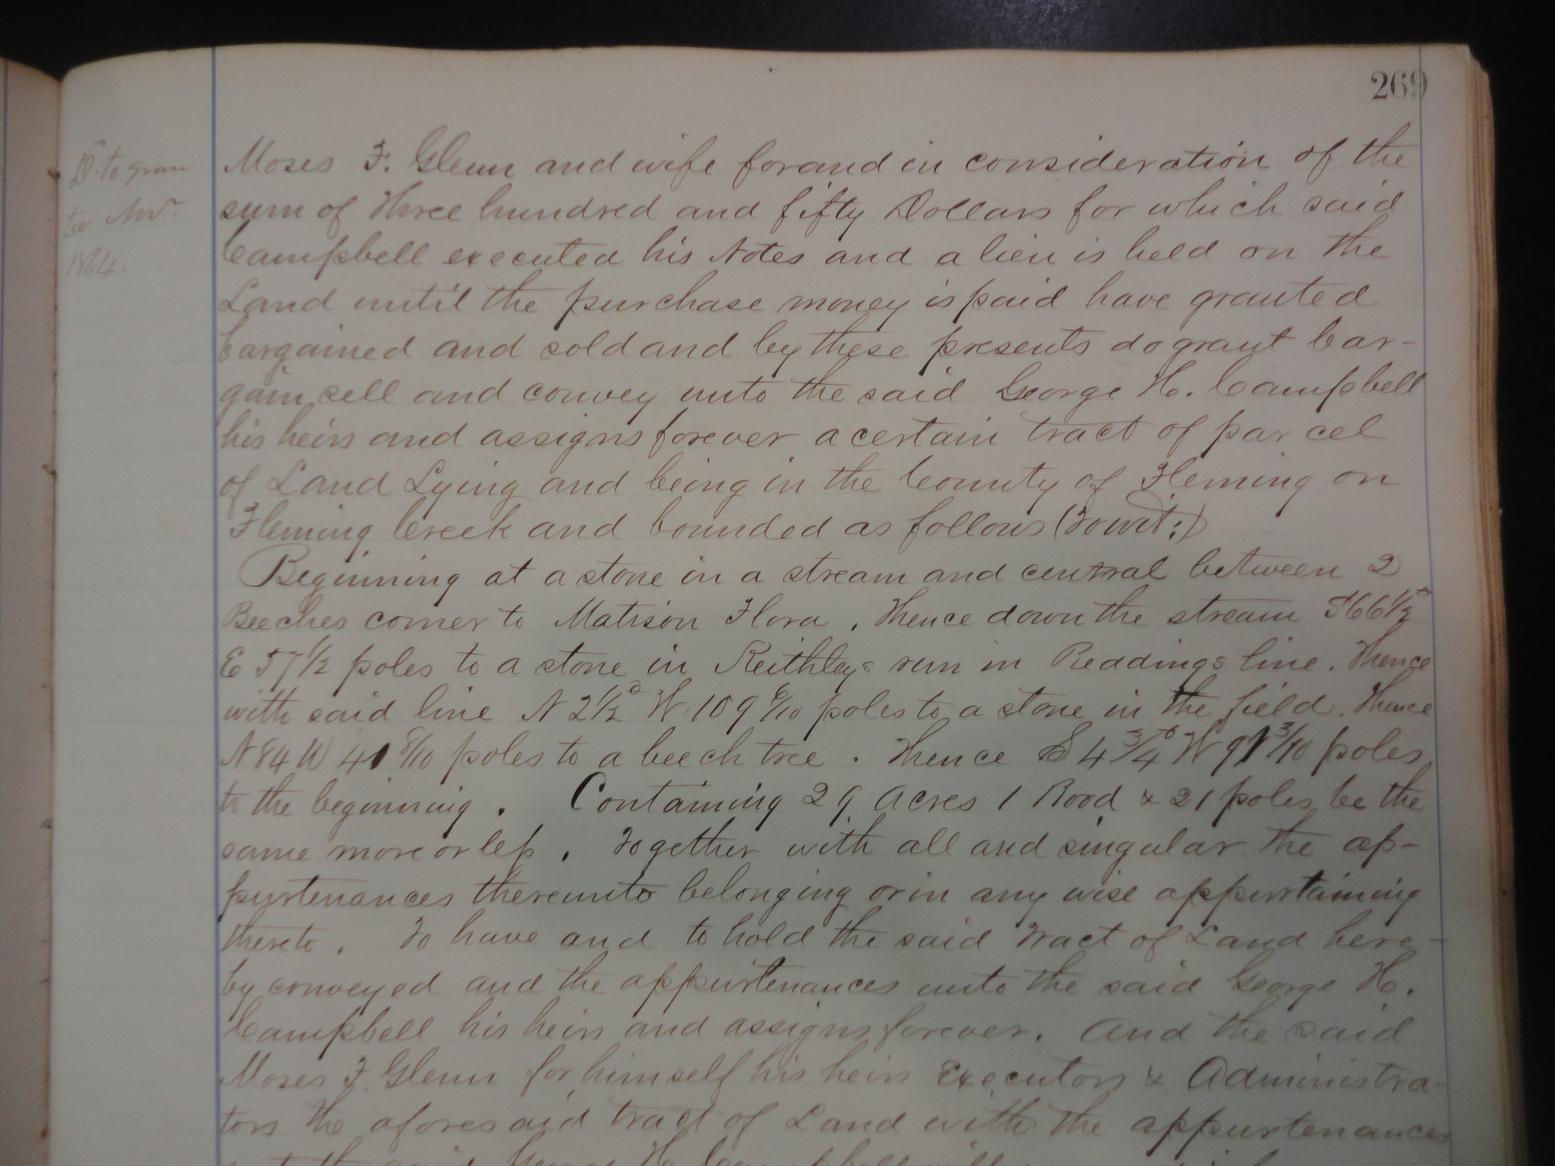 269
D. to gran
tee Nov.
1864.
Moses F. Glenn and wife for and in consideration of the
sum of Three hundred and fifty Dollars for which said
Campbell executed his Notes and a lien is held on the
Land until the purchase money is paid have granted
bargained and sold and by these presents do grant bar-
gain sell and convey unto the said George H. Campbell
his heirs and assigns forever a certain tract of parcel
of Land Lying and being in the County of Fleming on
Fleming Creek and bounded as follows (Towit:)
Beginning at a stone in a stream and central between 2
Beeches corner to Matison Flora, Thence down the stream S 66 1/2°
E 57 1/2 poles to a stone in Keithleys run in Readings line. Thence
with said line N 2 1/2° W 109 6/10 poles to a stone in the field. Thence
N 84 W 41 8/10 poles to a beech tree. Thence S 4 3/4° W 91 3/10 poles
to the beginning. Containing 29 Acres 1 Rood & 21 poles, be the
same more or less. Together with all and singular the ap-
purtenances thereunto belonging or in any wise appurtaining
thereto. To have and to hold the said Tract of Land here-
by conveyed and the appurtenances unto the said George H.
Campbell his heirs and assigns forever. And the said
Moses F. Glenn for himself his heirs Executors & Administra-
tors the aforesaid tract of Land with the appurtenances
the said George H. Campbell